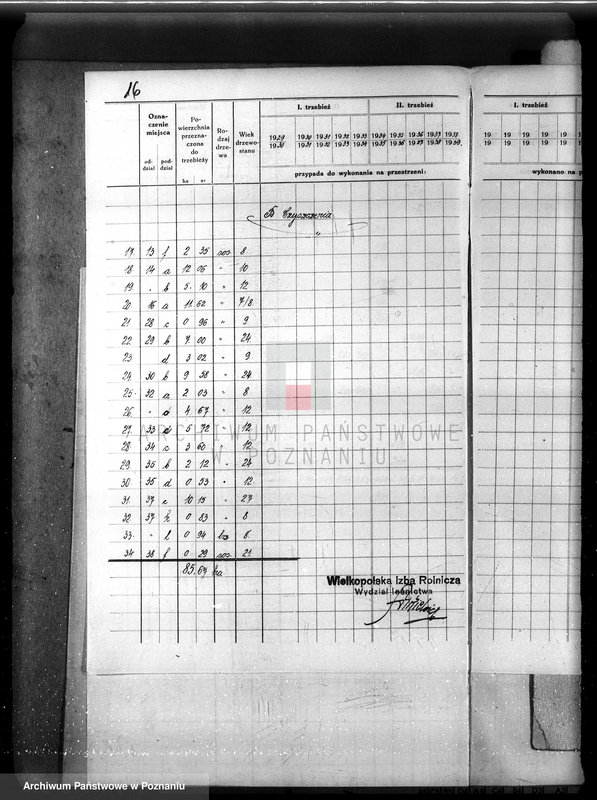 16
I. trzebież II. trzebież I. trzebież
Ozna-
czenie
miejsca
Po-
wierzchnia
przezna-
czona
do
trzebieży
Ro-
dzaj
drze-
wa
Wiek
drzewo-
stanu
od-
dział
pod-
dział
ha ar
1929 1930 1931 1932 1933 1934 1935 1936 1937 1938 19 19 19 19 19
1930 1931 1932 1933 1934 1935 1936 1937 1938 1939 19 19 19 19 19
przypada do wykonania na przestrzeni: wykonano na p
B Czyszczenia
"
17 13 f 2 35 sos 8
18 14 a 12 06 " 10
19 " b 5 10 " 12
20 16 a 11 62 " 7/8
21 28 c 0 96 " 9
22 29 b 7 00 " 24
23 d 3 02 " 9
24 30 b 9 58 " 24
25 32 a 2 03 " 8
26 " d 4 67 " 12
27 33 d 5 72 " 12
28 34 c 3 60 " 12
29 35 b 2 12 " 24
30 35 d 0 33 " 12
31 37 c 10 13 " 23
32 37 k 0 83 " 8
33 " l 0 94 8
34 38 f 0 29 sos 21
85,67 ha
ARCHIWUM PAŃSTWOWE
W POZNANIU
Wielkopolska Izba Rolnicza
Wydział leśnictwa
Archiwum Państwowe w Poznaniu